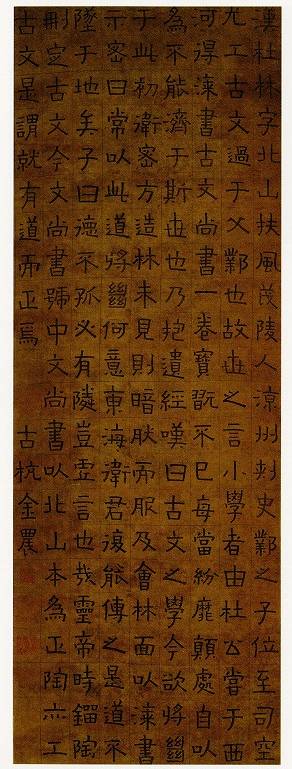 漢杜林字北山扶風茂陵人涼州刺史鄴之子位至司空
尤工古文過于父鄴也故世之言小學者由杜公嘗于西
河得漆書古文尚書一卷寶翫不已每當紛靡顛處自以
為不能濟于斯世也乃抱遺經嘆曰古文之學今欲將絕
于此初衛密方造林未見則暗肰而服及會林面以漆書
示密曰常以此道將絕何意東海衛君復能傳之是道不
墜于地矣子曰德不孤必有隣豈虛言也哉靈帝時鎦陶
刪定古文今文尚書號中文尚書以北山本為正陶亦工
古文是謂就有道而正焉 古杭金農